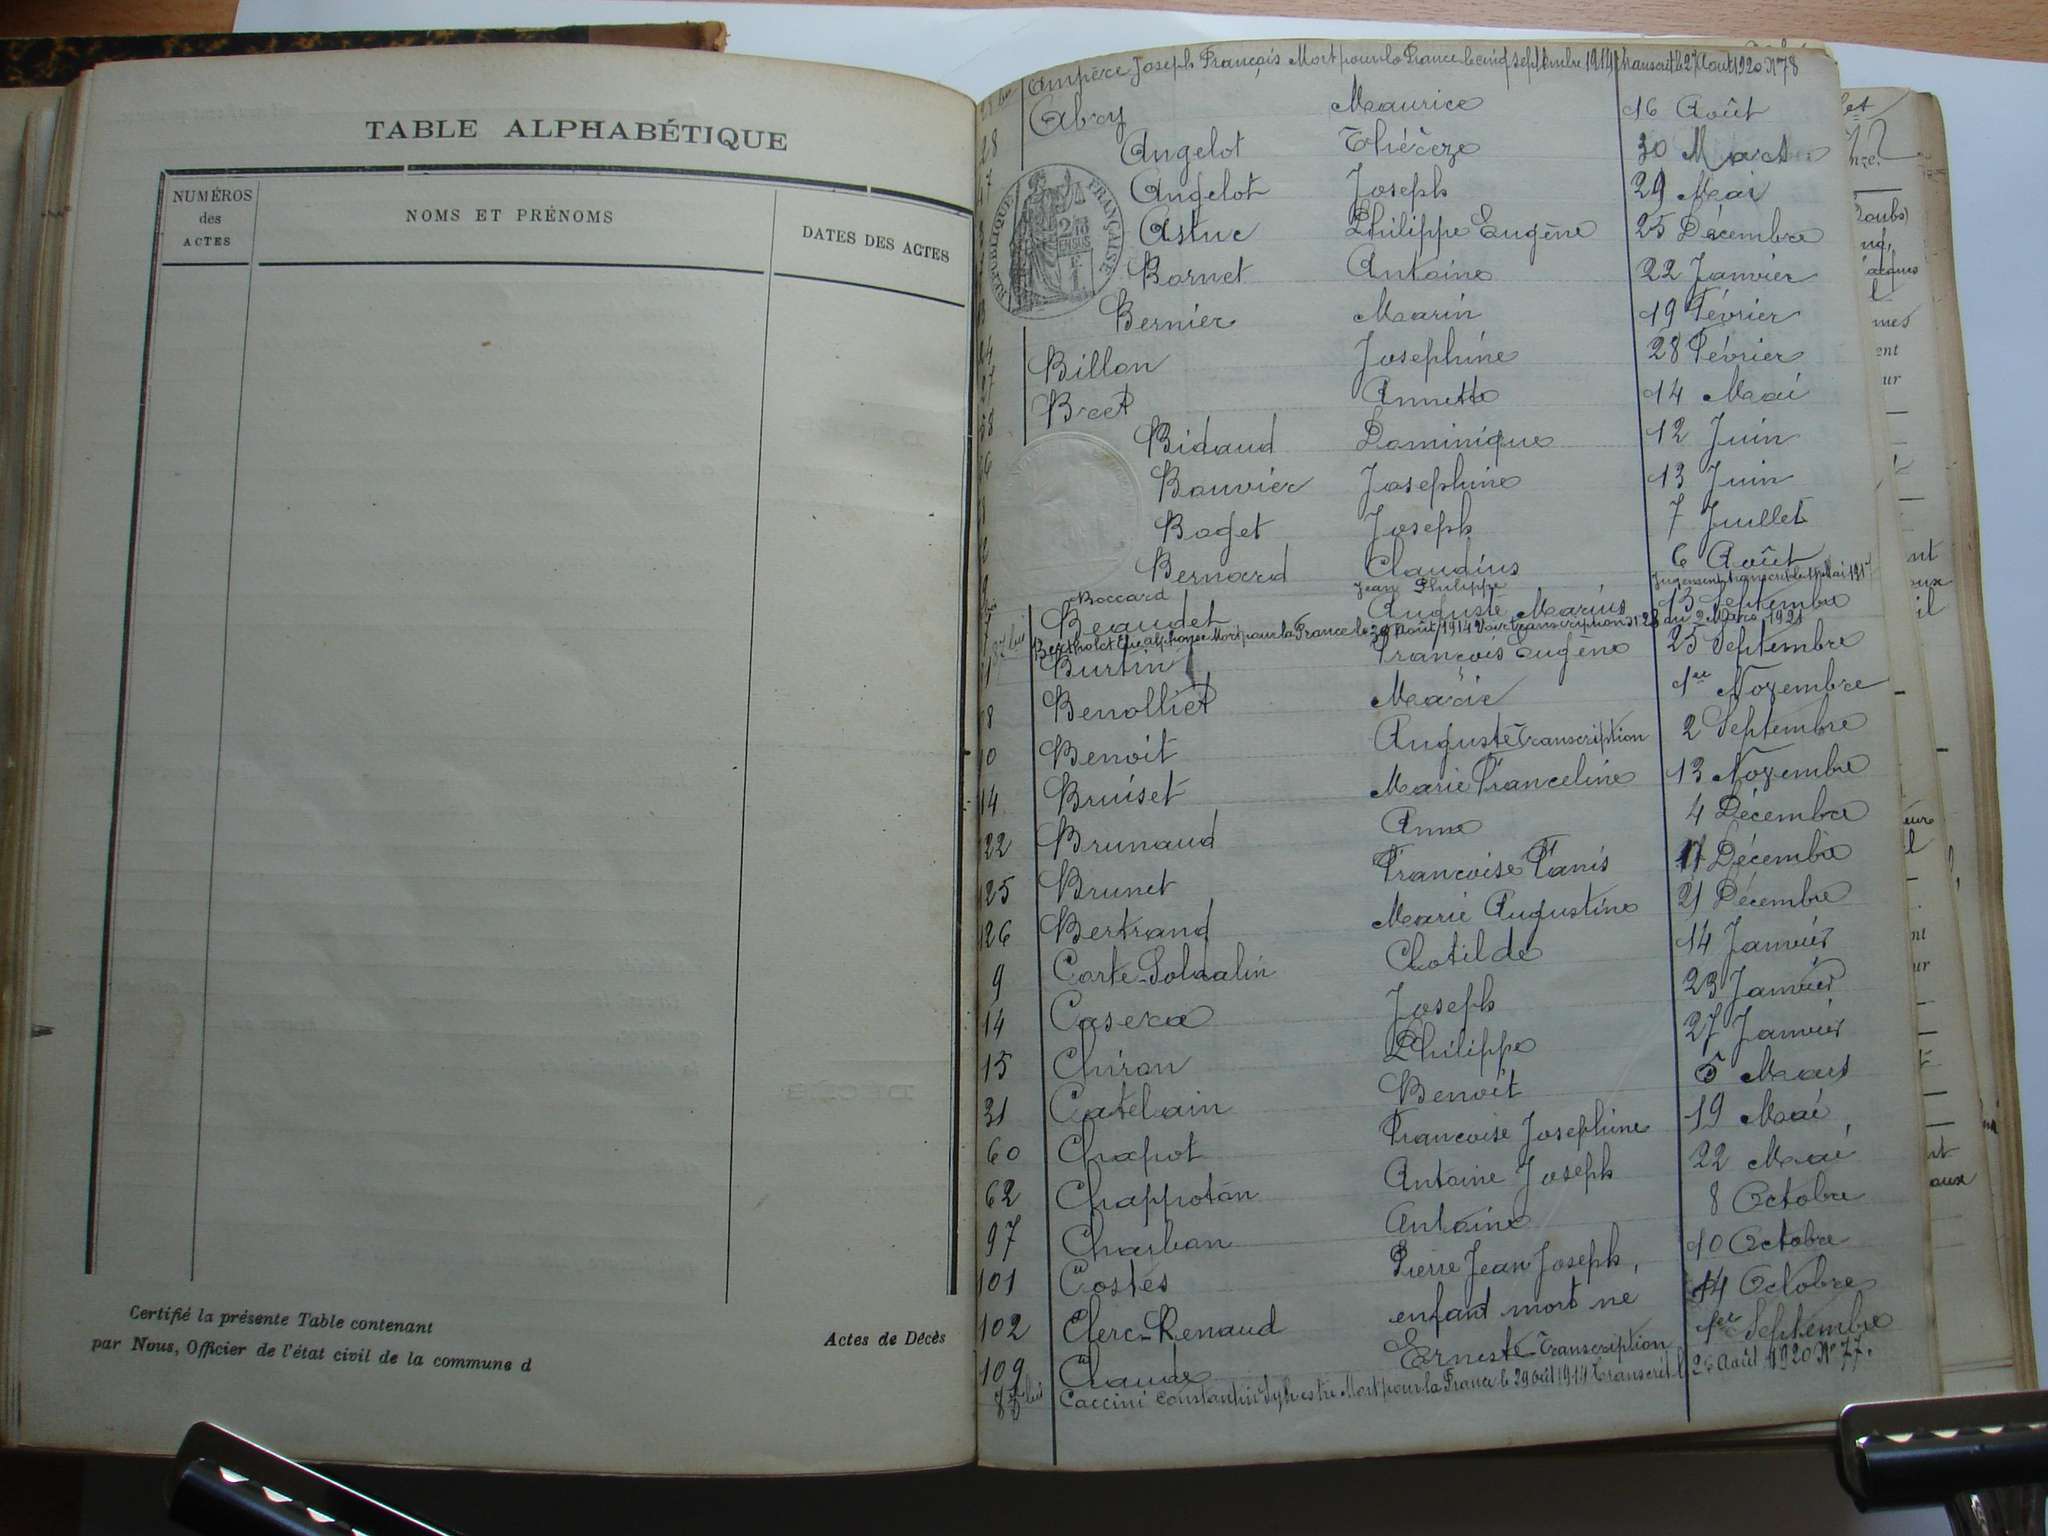 TABLE ALPHABÉTIQUE
NUMÉROS des ACTES
NOMS ET PRÉNOMS
DATES DES ACTES
Certifié la présente Table contenant
Actes de Décès
par Nous, Officier de l'état civil de la commune d
Ampère Joseph François Mort pour la France le cinq septembre 1914 transcrit le 27 Août 1920 N° 78
Abry Maurice 16 Août
28 Angelot Thérèze 30 Mars
Angelot Joseph 29 Mai
Astuc Philippe Eugène 25 Décembre
RÉPUBLIQUE FRANÇAISE
Bornet Antoine 22 Janvier
Bernier Marin 19 Février
24 Billon Josephine 28 Février
27 Bret Annette 14 Mai
58 Bidaud Dominique 12 Juin
Bouvier Josephine 13 Juin
Boget Joseph 7 Juillet
Bernard Claudius 6 Août
Boccard Jean Philippe Jugement transcrit le Mai 1917
Beaudet Auguste Marius 13 Septembre
Bertholet Alphonse Mort pour la France le 30 Août 1914 Voir transcription N° 28 du 2 Mars 1921
Burtin François Eugène 25 Septembre
Benolliet Marie 1er Novembre
Benoit Auguste Transcription 2 Septembre
14 Bruiset Marie Franceline 13 Novembre
122 Brunaud Anna 4 Décembre
125 Brunet Françoise Fanis 17 Décembre
126 Bertrand Marie Augustine 21 Décembre
9 Corte-Soldalin Clotilde 14 Janvier
14 Casera Joseph 23 Janvier
15 Chiron Philippe 27 Janvier
31 Catelain Benoit 5 Mars
60 Chapot Françoise Josephine 19 Mai
62 Chappotan Antoine Joseph 22 Mai
97 Charban Antoine 8 Octobre
101 Costes Pierre Jean Joseph 10 Octobre
102 Clerc-Renaud enfant mort né 14 Octobre
109 Claude Ernest Transcription 1er Septembre
85 bis Caccini Constantin Sylvestre Mort pour la France le 29 Août 1914 Transcrit le 26 Août 1920 N° 77.